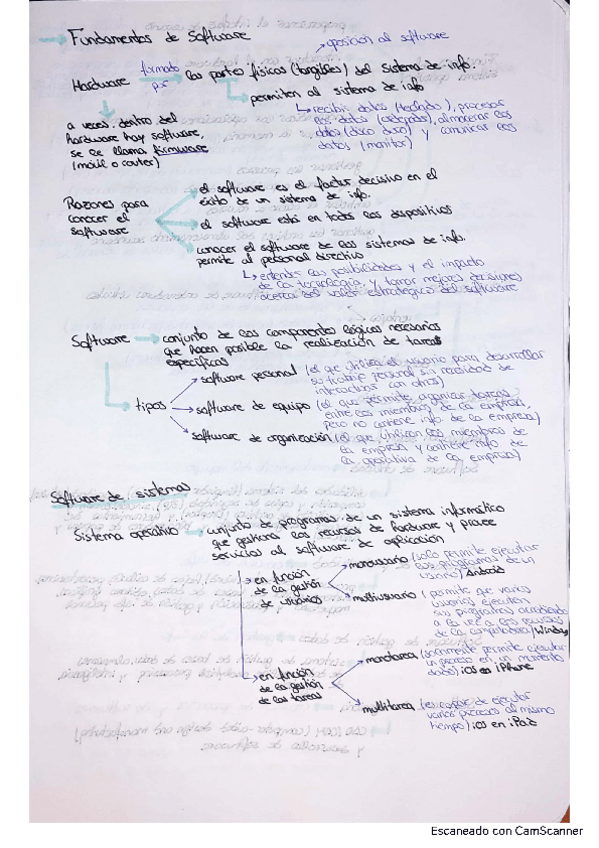 → Fundamentos de Software
→ oposición al software
Hardware formado por → las partes físicas (tangibles) del sistema de info.
→ permiten al sistema de info
↳ recibir datos (teclado), procesar
los datos (), almacenar los
datos (disco duro) y comunicar los
datos (monitor)
a veces, dentro del
hardware hay software,
se le llama firmware
(móvil o router)
Razones para
conocer el
software
el software es el factor decisivo en el
éxito de un sistema de info.
el software está en todos los dispositivos
conocer el software de los sistemas de info.
permite al personal directivo
↳ entender las posibilidades y el impacto
de la tecnología, y tomar mejores decisiones
acerca del valor estratégico del software
Software → conjunto de los componentes lógicos necesarios
que hacen posible la realización de tareas
específicas
→ tipos
software personal (el que utiliza el usuario para desarrollar
su trabajo personal sin necesidad de
interactuar con otros)
software de equipo (el que permite organizar tareas
entre los miembros de la empresa,
pero no contiene info. de la empresa)
software de organización (el que utilizan los miembros de
la empresa y contiene info de
la operativa de la empresa)
Software de sistemas
Sistema operativo → conjunto de programas de un sistema informático
que gestiona los recursos de hardware y provee
servicios al software de aplicación
→ en función
de la gestión
de usuarios
monousuario (solo permite ejecutar
los programas de un
usuario) Android
multiusuario (permite que varios
usuarios ejecuten
sus programas accediendo
a la vez a los recursos
de la computadora) Windows
→ en función
de la gestión
de las tareas
monotarea (solamente permite ejecutar
un proceso en un momento
dado) iOS en iPhone
multitarea (es capaz de ejecutar
varios procesos al mismo
tiempo) iOS en iPad
Escaneado con CamScanner